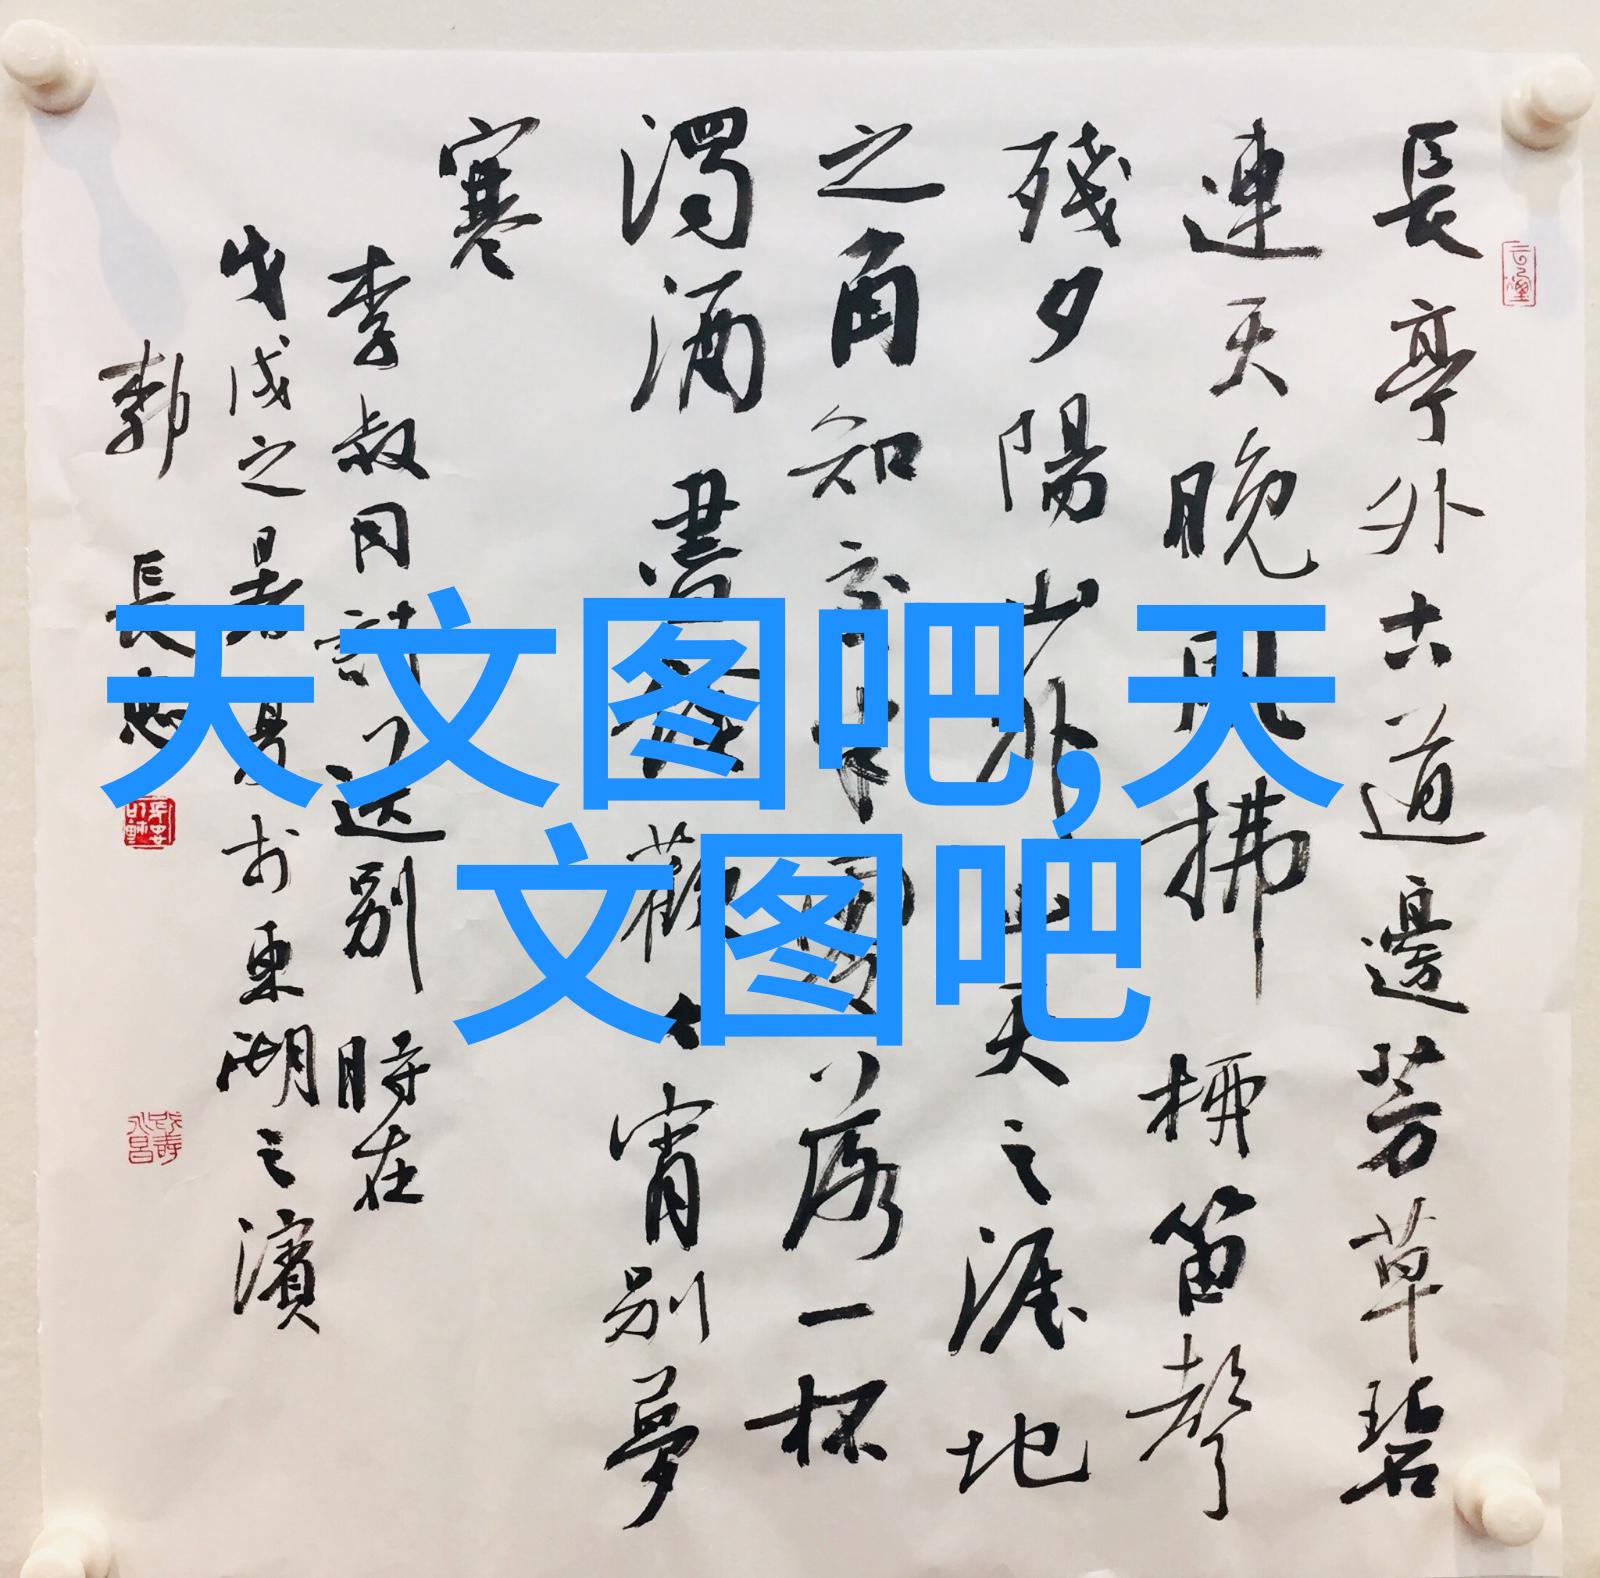 長亭外古道邊芳草碧
連天晚風拂柳笛聲
殘夕陽山外山天之涯地
之角知交半零落一杯
濁酒盡餘歡今宵別夢
寒
李叔同詩送別 時在
戊戌之暑月於東湖之濱
郭 長
天文图吧,天
文图吧